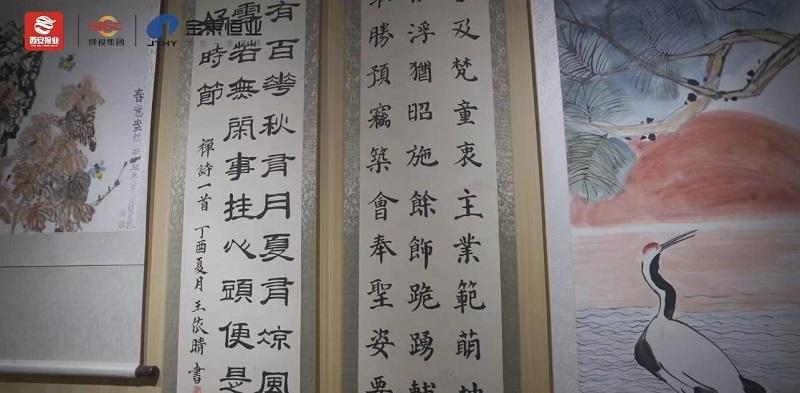 西安报业
SIGC
陕投集团
JTHY
金泰恒业
春意盎然
有百華秋有月夏有凉風
雪若無閑事挂心頭便是
好時節
禪詩一首 丁酉夏月 王依晴書
及梵童衷主業範萌
浮猶昭施餘飾跪踴
勝預竊築會奉聖姿要